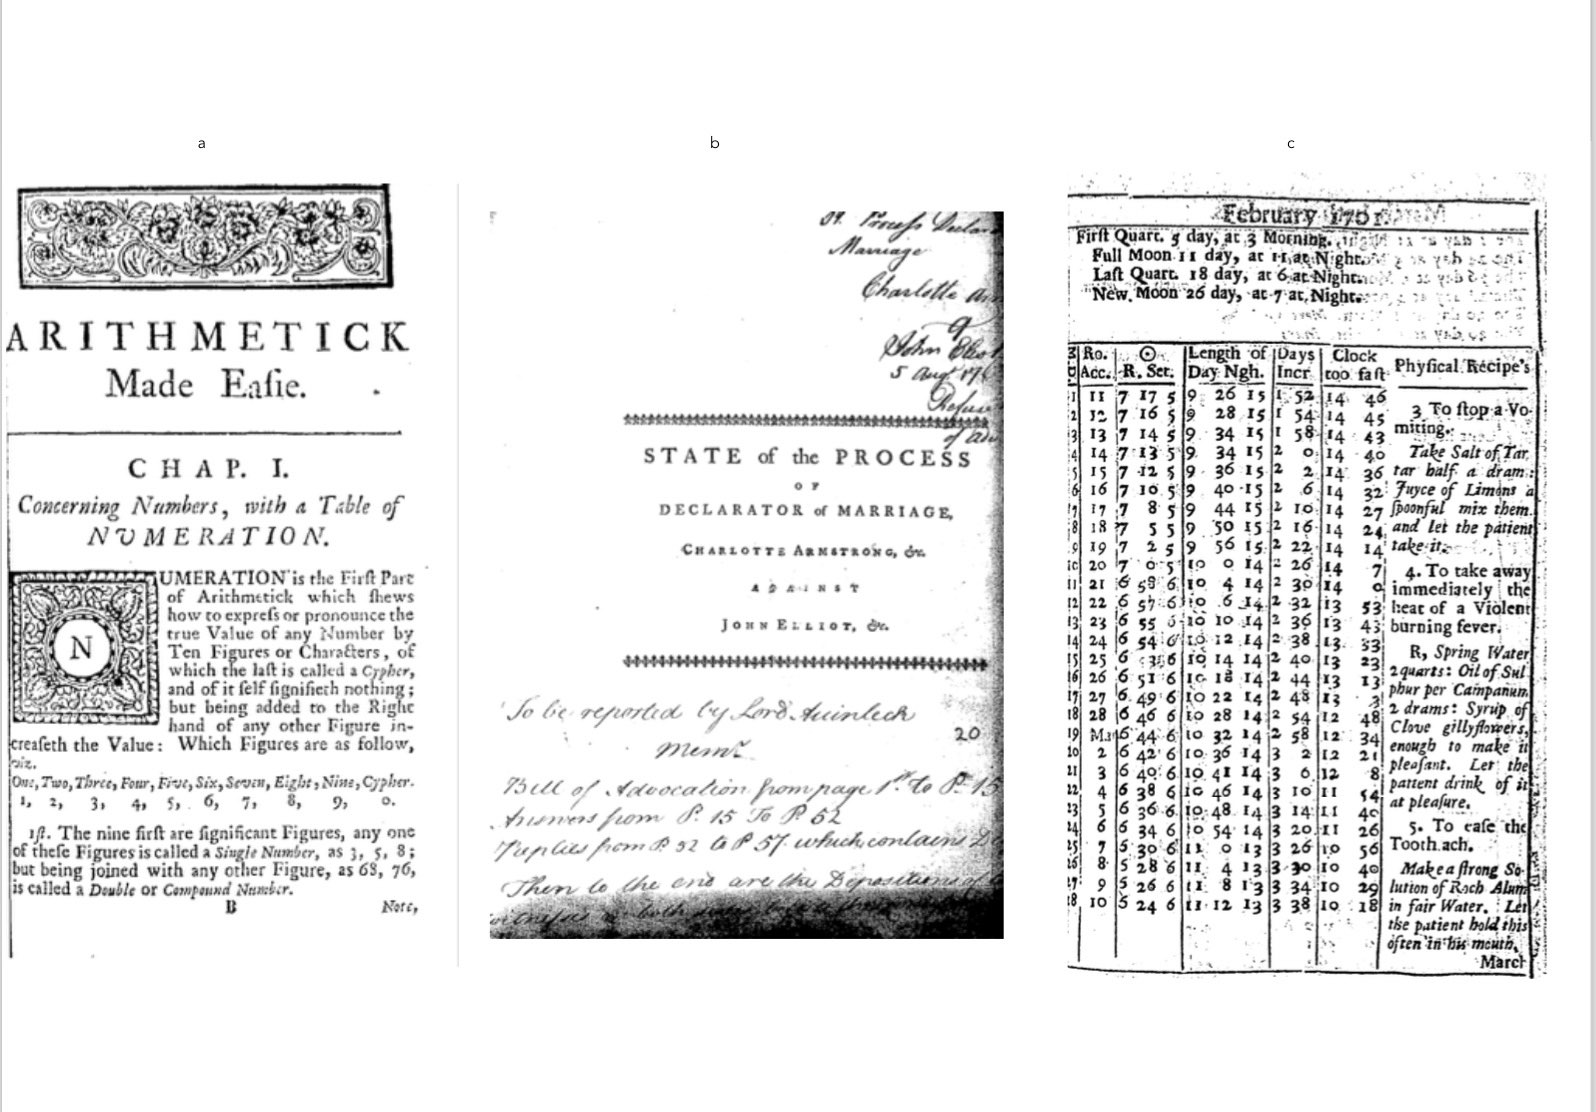 a
ARITHMETICK
Made Eaſie.
CHAP. I.
Concerning Numbers, with a Table of
NVMERATION.
NUMERATION is the Firſt Part
of Arithmetick which ſhews
how to expreſs or pronounce the
true Value of any Number by
Ten Figures or Characters, of
which the laſt is called a Cypher,
and of it ſelf ſignifieth nothing;
but being added to the Right
hand of any other Figure in-
creaſeth the Value: Which Figures are as follow,
viz.
One, Two, Three, Four, Five, Six, Seven, Eight, Nine, Cypher.
1, 2, 3, 4, 5, 6, 7, 8, 9, 0.
1ſt. The nine firſt are ſignificant Figures, any one
of theſe Figures is called a Single Number, as 3, 5, 8;
but being joined with any other Figure, as 68, 76,
is called a Double or Compound Number.
B Note,
b
Process
Marriage
Charlotte
John
5 Aug
STATE of the PROCESS
OF
DECLARATOR of MARRIAGE,
CHARLOTTE ARMSTRONG, &c.
AGAINST
JOHN ELLIOT, &c.
To be reported by Lord Auinleck
20
Memr.
Bill of Advocation from page 1st to P. 15
Answers from P. 15 To P. 52
Replies from P. 52 to P 57 which contains
Then to the end are the Depositions of
both
c
February 1701
Firſt Quart. 5 day, at 3 Morning.
Full Moon 11 day, at 11 at Night.
Laſt Quart. 18 day, at 6 at Night.
New Moon 26 day, at 7 at Night.
Ro. ☉ Length of Days Clock
Acc. R. Set. Day Ngh. Incr too faſt Phyſical Recipe's
1 11 7 17 5 9 26 15 1 52 14 46
2 12 7 16 5 9 28 15 1 54 14 45
3 13 7 14 5 9 34 15 1 58 14 43
4 14 7 13 5 9 34 15 2 0 14 40
5 15 7 12 5 9 36 15 2 2 14 36
6 16 7 10 5 9 40 15 2 6 14 32
7 17 7 8 5 9 44 15 2 10 14 27
8 18 7 5 5 9 50 15 2 16 14 24
9 19 7 2 5 9 56 15 2 22 14 14
10 20 7 0 5 10 0 14 2 26 14 7
11 21 6 58 6 10 4 14 2 30 14 0
12 22 6 57 6 10 6 14 2 32 13 53
13 23 6 55 10 10 14 2 36 13 43
14 24 6 54 6 10 12 14 2 38 13 33
15 25 6 6 10 14 14 2 40 13 23
16 26 6 51 6 10 18 14 2 44 13 13
17 27 6 49 6 10 22 14 2 48 13 3
18 28 6 46 6 10 28 14 2 54 12 48
19 Ma 6 44 6 10 32 14 2 58 12 34
20 2 6 42 6 10 36 14 3 2 12 21
21 3 6 40 6 10 41 14 3 6 12 8
22 4 6 38 6 10 46 14 3 10 11 54
23 5 6 36 6 10 48 14 3 14 11 40
24 6 6 34 6 10 54 14 3 20 11 26
25 7 6 30 6 11 0 13 3 26 10 56
26 8 5 28 6 11 4 13 3 30 10 40
27 9 5 26 6 11 8 13 3 34 10 29
28 10 5 24 6 11 12 13 3 38 10 18
3 To ſtop a Vo-
miting.
Take Salt of Tar
tar half a dram:
Juyce of Limons a
ſpoonful mix them
and let the patient
take it.
4. To take away
immediately the
heat of a Violent
burning fever.
R, Spring Water
2 quarts: Oil of Sul
phur per Campanum
2 drams: Syrup of
Clove gillyflowers,
enough to make it
pleaſant. Let the
patient drink of it
at pleaſure.
5. To eaſe the
Tooth ach.
Make a ſtrong So
lution of Roch Alum
in fair Water. Let
the patient hold this
often in his mouth.
March